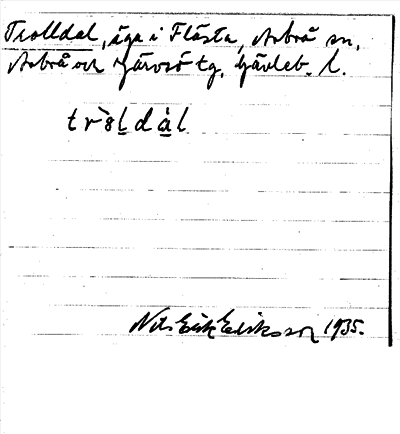 Trolldal, äga i Flästa, Arbrå sn,
Arbrå och Järvsö tg. Gävleb. l.
tròl̲dà̲l
Nils Erik Eriksson 1935.